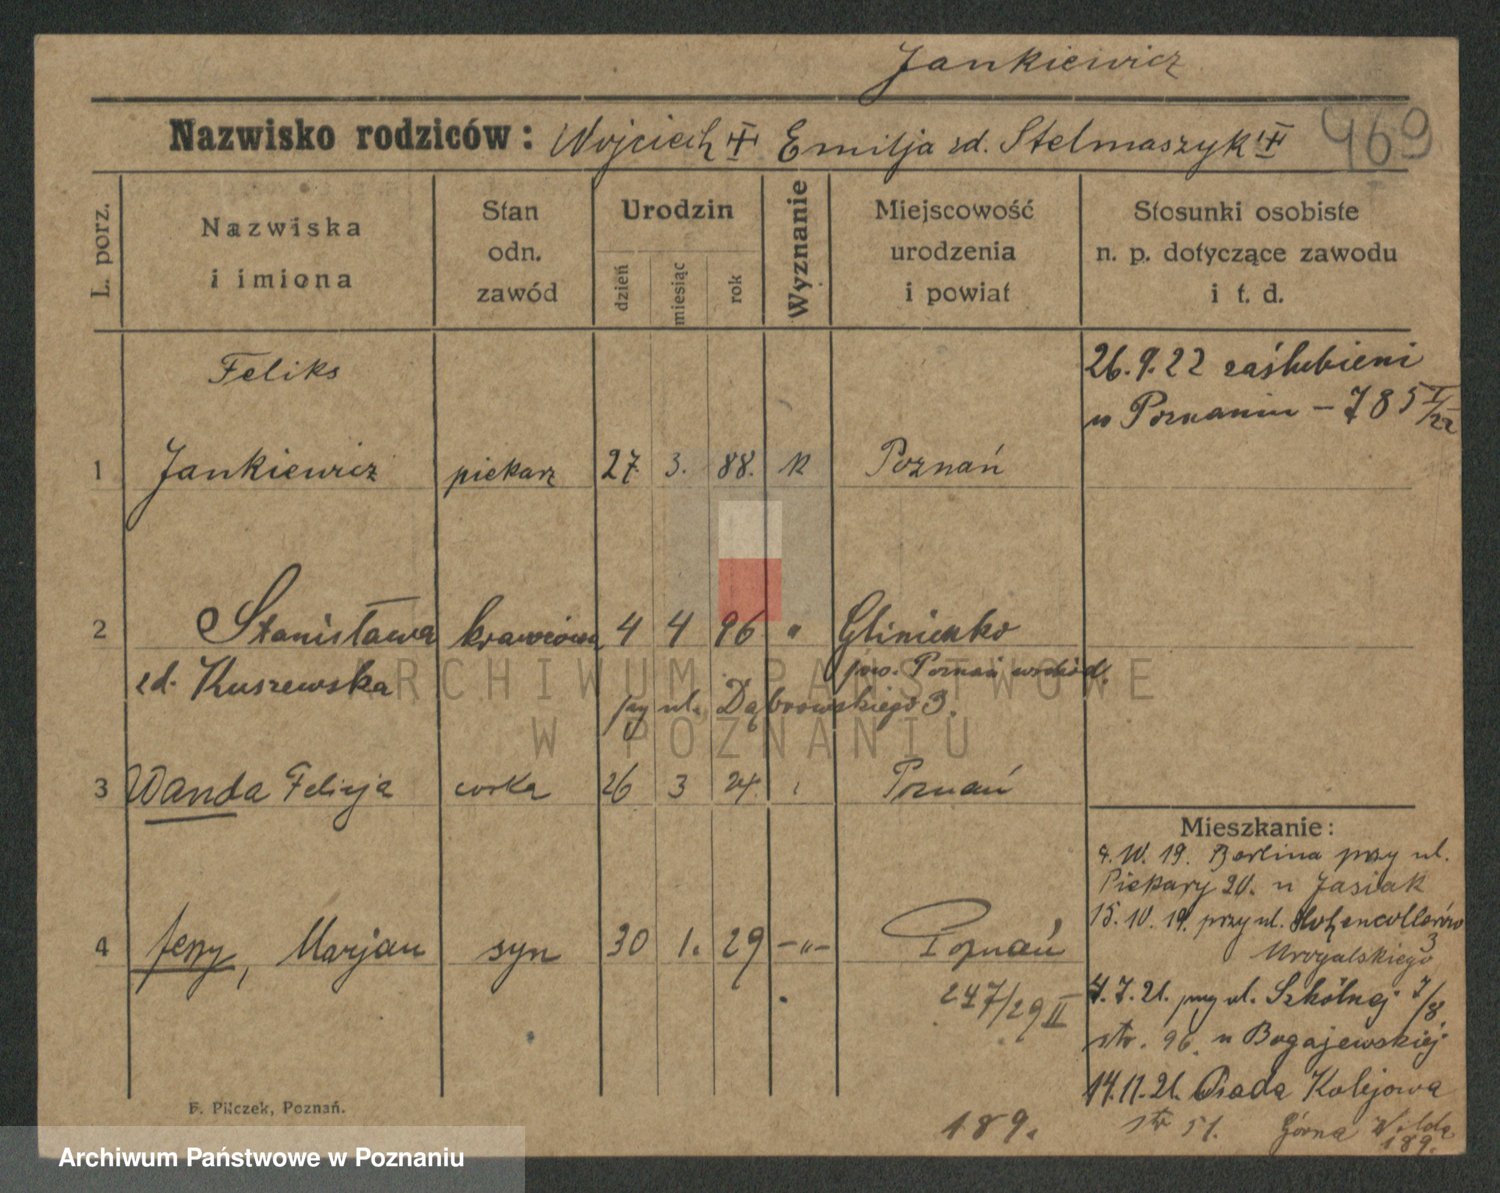 Jankiewicz
Nazwisko rodziców: Wojciech Emilja zd. Stelmaszyk
469
L. porz.
Nazwiska i imiona
Stan odn. zawód
Urodzin
dzień
miesiąc
rok
Wyznanie
Miejscowość urodzenia i powiat
Stosunki osobiste n. p. dotyczące zawodu i t. d.
Feliks
26.9.22 zaślubieni
w Poznaniu – 785 I/22
1 Jankiewicz piekarz 27. 3. 88. k Poznań
2 Stanisława krawcowa 4 4 96 " Glinienko
zd. Kuszewska pow. Poznań wschód.
przy ul. Dąbrowskiego 3.
ARCHIWUM PAŃSTWOWE
W POZNANIU
3 Wanda Felicja córka 26 3 24. Poznań
Mieszkanie:
z Berlina przy ul.
Piekary 20. u Jasiak
4 Jerzy, Marjan syn 30 1. 29 –"– Poznań
247/29 II
15.10.19. przy ul. Hohenzollernów
3
4.7.21. przy ul. Szkólnej 7/8
str. 96. u Bogajewskiej
14.11.21. Osada Kolejowa
str 51. Górna Wilda
189.
189.
F. Pilczek, Poznań.
Archiwum Państwowe w Poznaniu